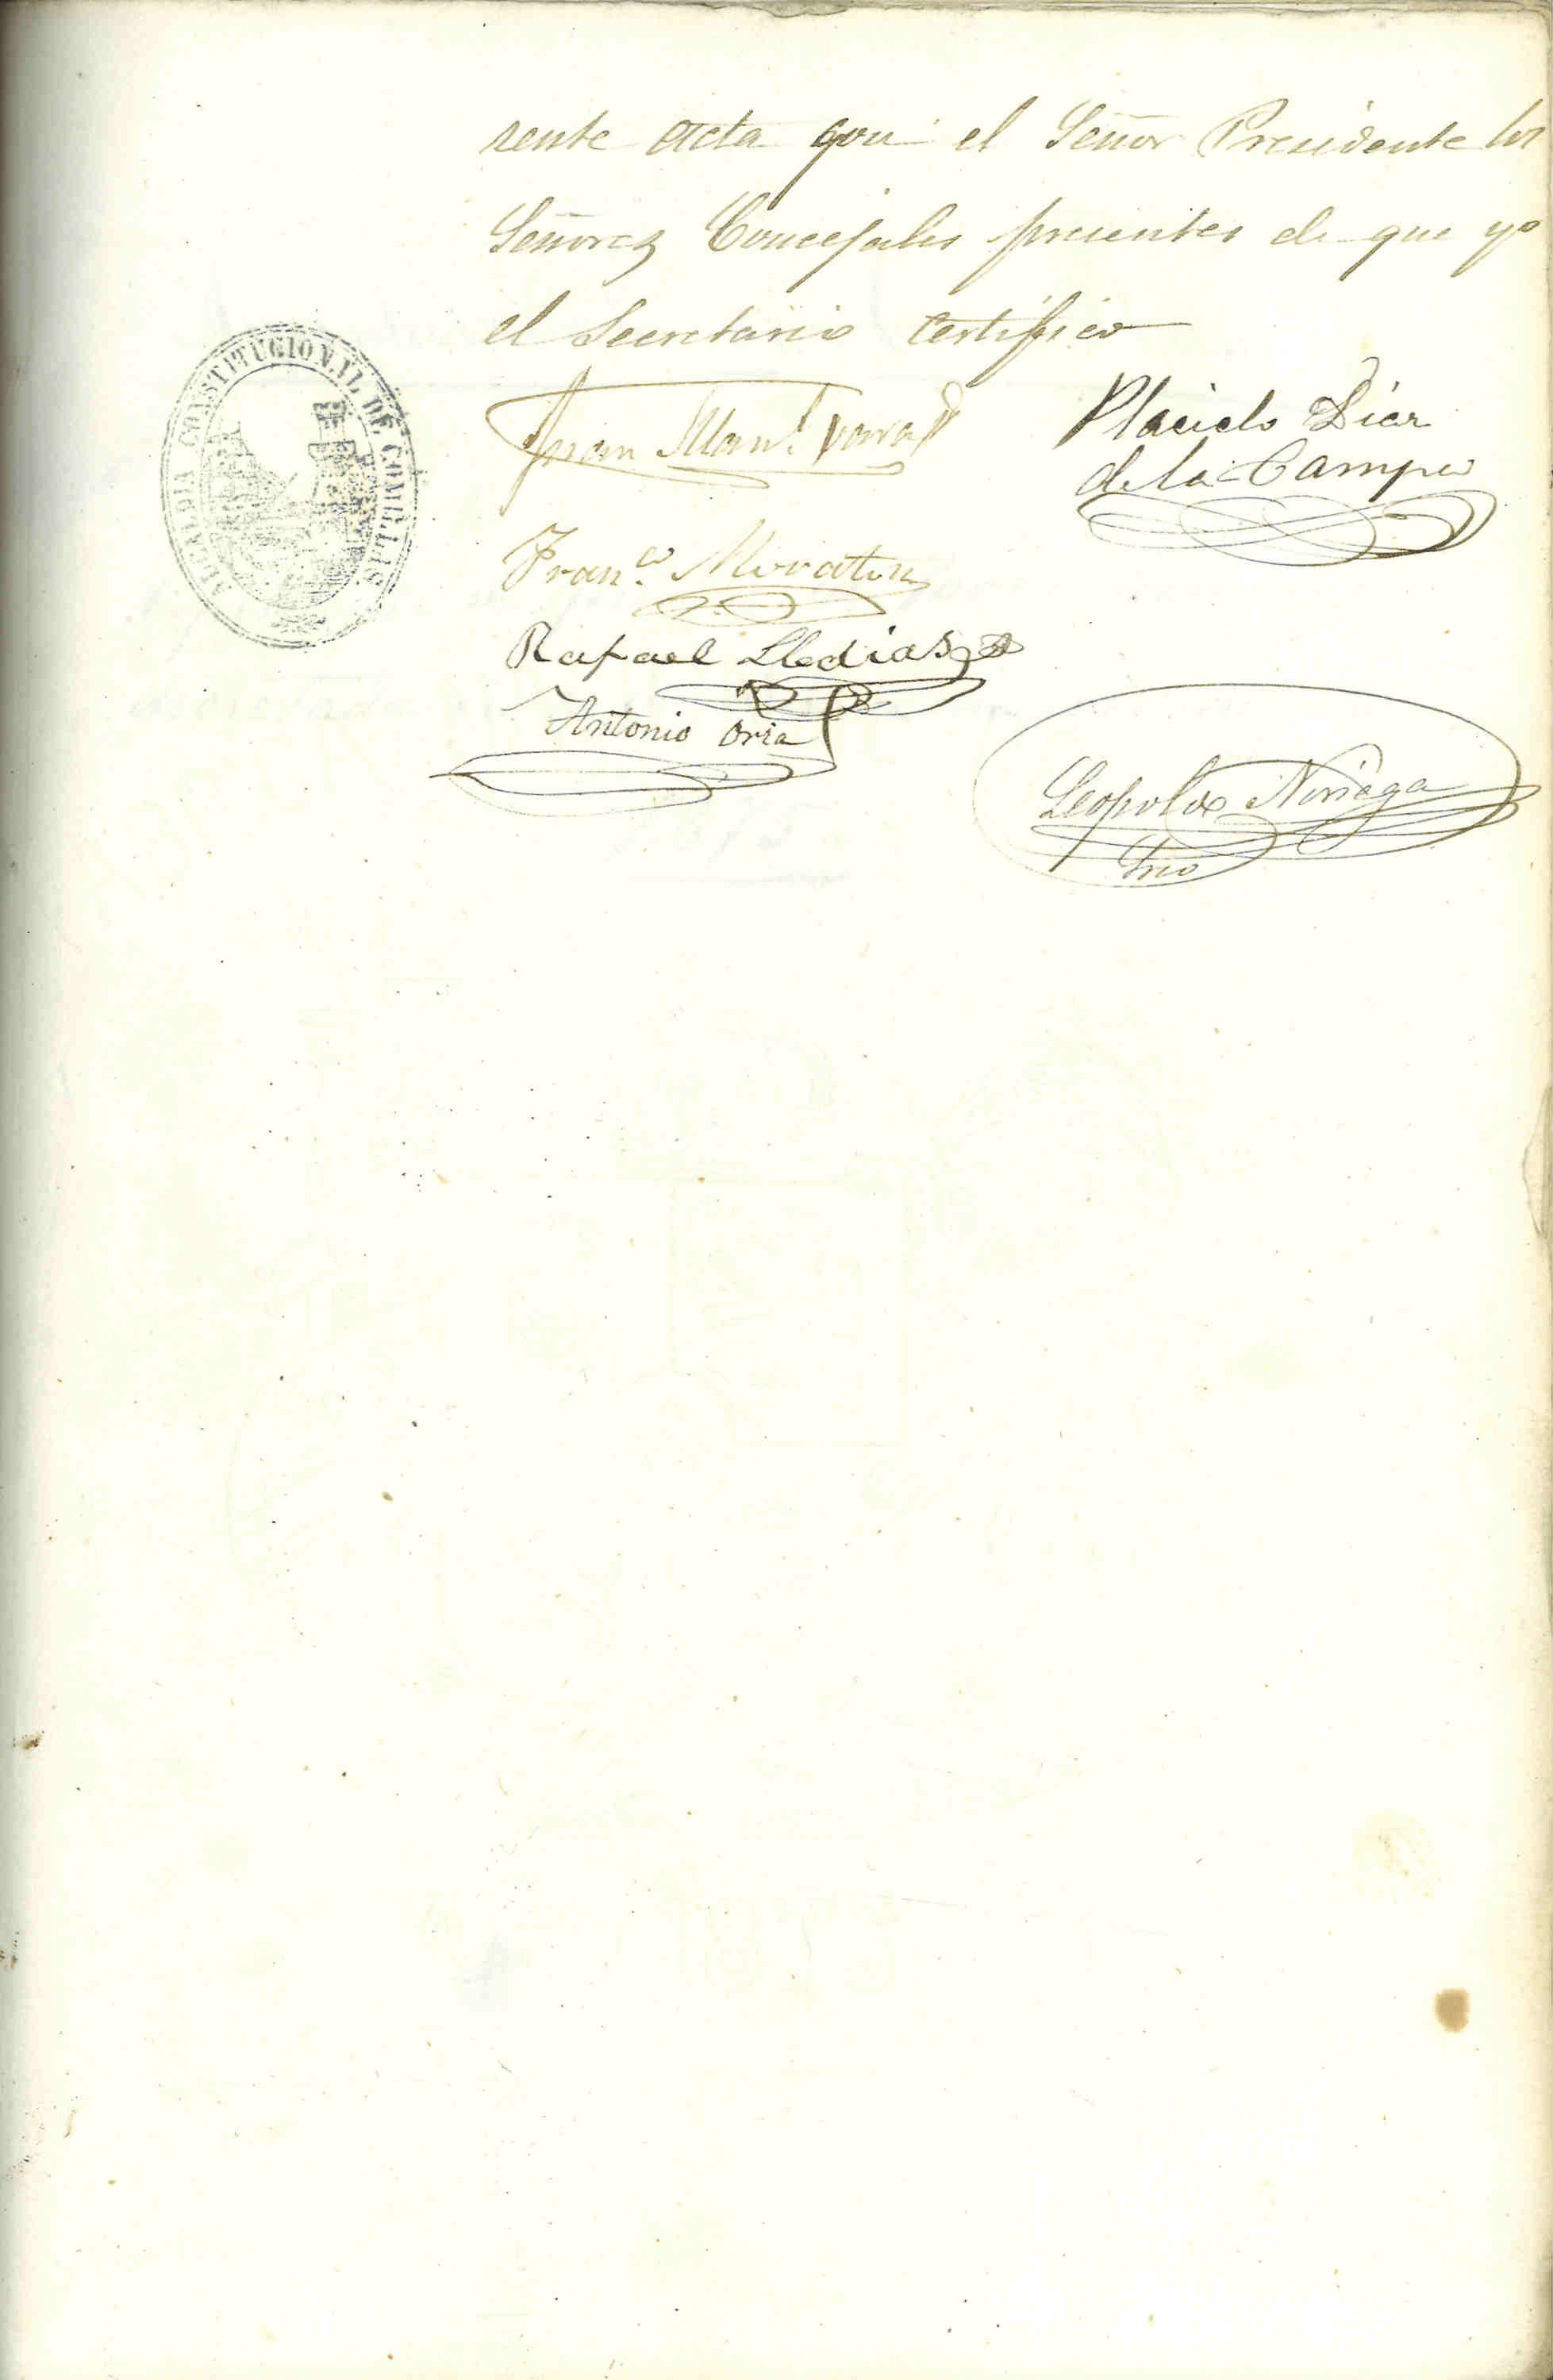 sente acta con el Señor Presidente los
Señores Concejales presentes de que yo
el Secretario Certifico
ALCALDIA CONSTITUCIONAL DE COMILLAS
Juan Man.l
Placido Diaz
de la Campa
Fran.co Moratin
Rafael Lledias
Antonio Oria
Leopoldo Noriega
Srio